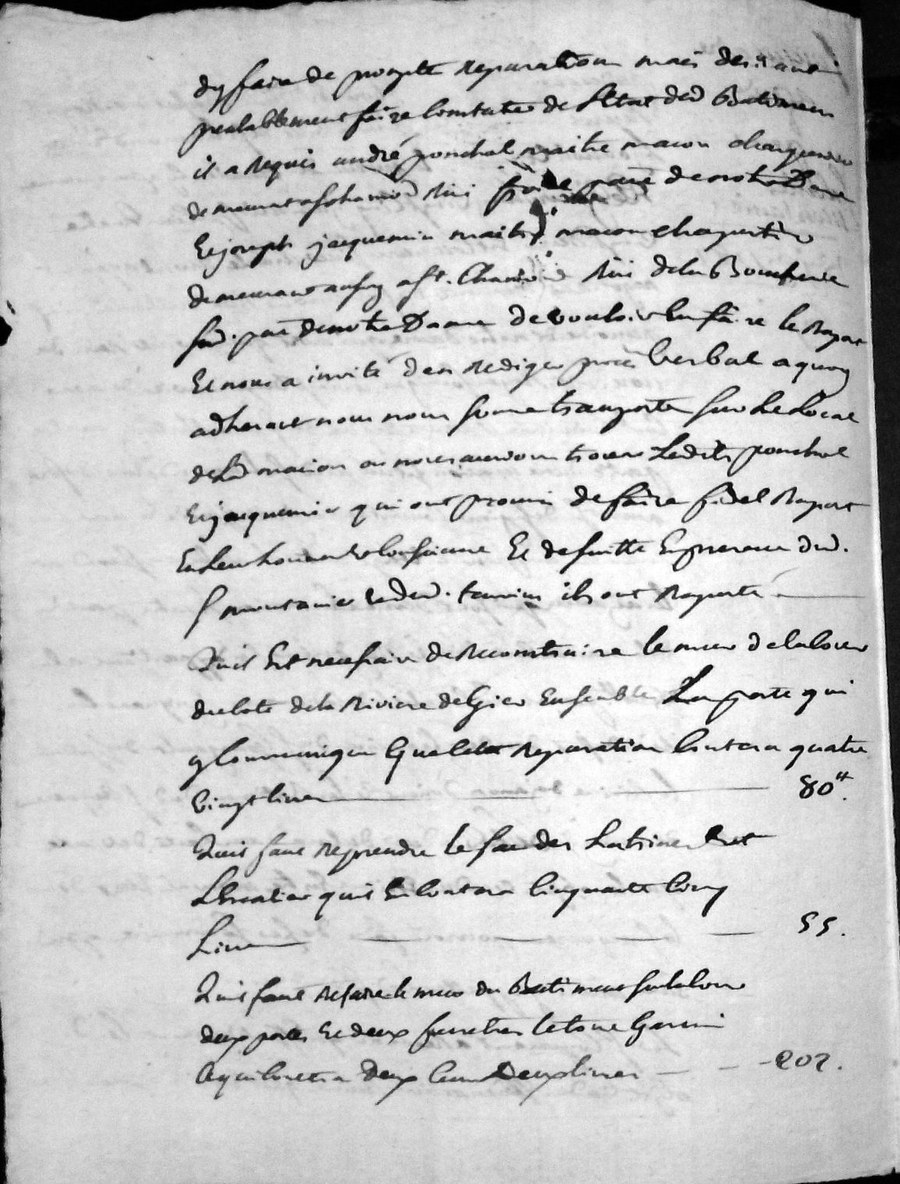 dy faire de prompte reparation mais desirant
prealablement faire Constater de l'Etat dud Batiment
il a requis andré ponchal maitre macon charpentier
demeurant a st chamond Rüe paroisse de notre Dame
Et joseph jacquemin maitre macon charpentier
demeurant aussy a St. Chamond Rüe de la Boucherie
sud. par de notre Dame de vouloir En faire le Raport
Et nous a invité den Rediger procés Verbal a quoy
adherant nous nous somme transportés sur Le Local
de lad maison ou nous aurions trouvé Lesdits ponchal
Et jacquemin qui ont promi de faire fidel Raport
En leur honneur & Consience Et de suitte En presence dud.
s montanier & dud. ils ont Raporté
Quil Est necessaire de Reconstruire le mur de la Cour
du Coté de la Riviere de Gier Ensemble La porte qui
y Communique Que lete Reparation Coutera quatre
Vingt livres 80#.
Quil faut Reprendre le des Latrines Et
LEscalier quil En Coutera Cinquante Cinq
Livres 55.
Quil faut Refaire le mur du Batiment sur la Cour
deux portes Et deux fenetres le tout Garni
Ce qui Coutera deux Cent Deux livres 202.